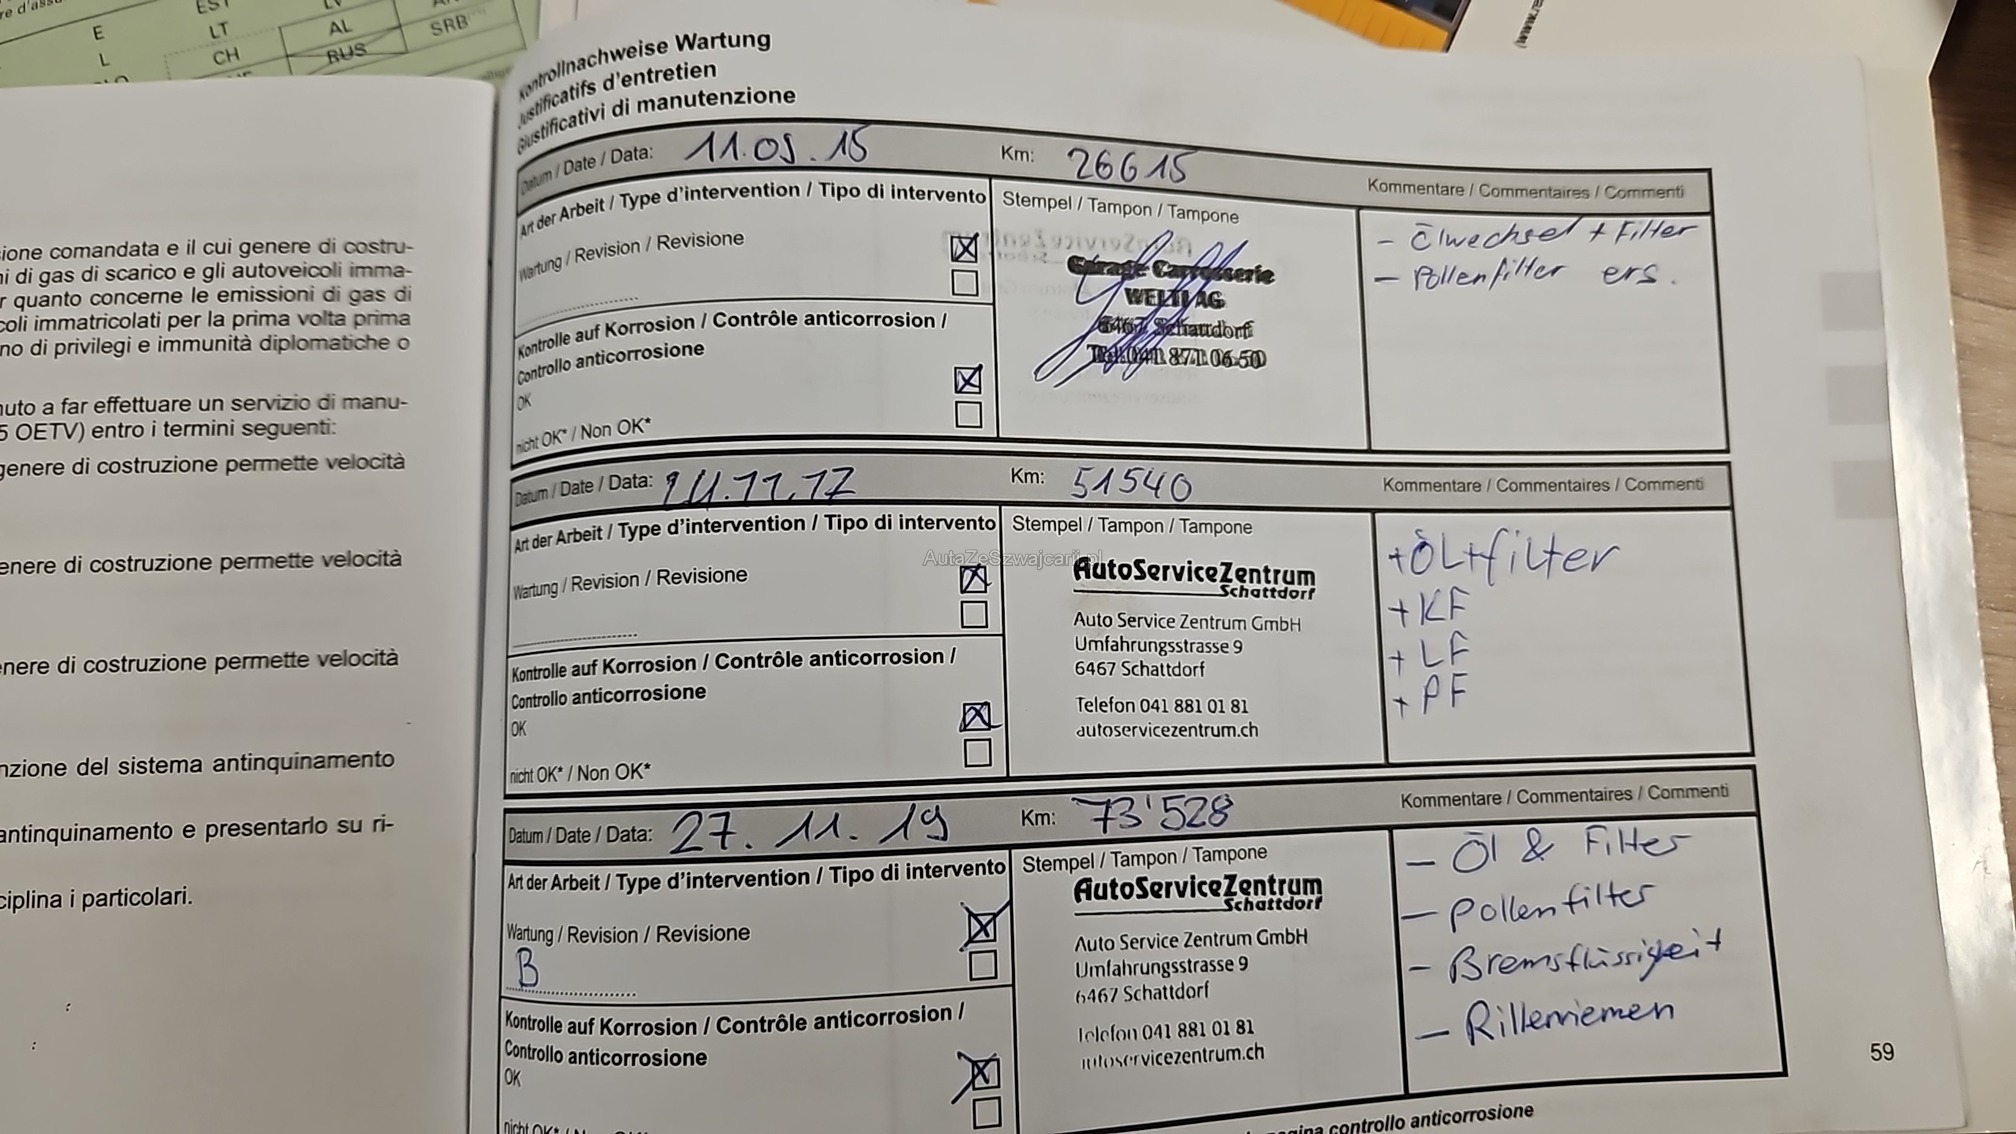 E
EST
LT
AL
L
CH
RUS
SRB
ione comandata e il cui genere di costru-
ni di gas di scarico e gli autoveicoli imma-
r quanto concerne le emissioni di gas di
coli immatricolati per la prima volta prima
no di privilegi e immunità diplomatiche o
nuto a far effettuare un servizio di manu-
5 OETV) entro i termini seguenti:
genere di costruzione permette velocità
enere di costruzione permette velocità
nere di costruzione permette velocità
nzione del sistema antinquinamento
antinquinamento e presentarlo su ri-
ciplina i particolari.
Kontrollnachweise Wartung
Justificatifs d'entretien
Giustificativi di manutenzione
Datum / Date / Data: 11.09.15 Km: 26615 Kommentare / Commentaires / Commenti
Art der Arbeit / Type d'intervention / Tipo di intervento
Stempel / Tampon / Tampone
Wartung / Revision / Revisione
Garage Carrosserie
WELTI AG
6467 Schattdorf
Tel. 041 871 06 50
- Ölwechsel + Filter
- Pollenfilter ers.
Kontrolle auf Korrosion / Contrôle anticorrosion /
Controllo anticorrosione
OK
nicht OK* / Non OK*
Datum / Date / Data: 14.11.17 Km: 51540 Kommentare / Commentaires / Commenti
Art der Arbeit / Type d'intervention / Tipo di intervento
Stempel / Tampon / Tampone
AutaZeSzwajcarii.pl
Wartung / Revision / Revisione
AutoServiceZentrum
Schattdorf
Auto Service Zentrum GmbH
Umfahrungsstrasse 9
6467 Schattdorf
Telefon 041 881 01 81
autoservicezentrum.ch
+ÖL+filter
+ KF
+ LF
+ PF
Kontrolle auf Korrosion / Contrôle anticorrosion /
Controllo anticorrosione
OK
nicht OK* / Non OK*
Datum / Date / Data: 27.11.19 Km: 73'528 Kommentare / Commentaires / Commenti
Art der Arbeit / Type d'intervention / Tipo di intervento
Stempel / Tampon / Tampone
Wartung / Revision / Revisione
B
AutoServiceZentrum
Schattdorf
Auto Service Zentrum GmbH
Umfahrungsstrasse 9
6467 Schattdorf
Telefon 041 881 01 81
autoservicezentrum.ch
- Öl & Filter
- Pollenfilter
- Bremsflüssigkeit
- Rillenriemen
Kontrolle auf Korrosion / Contrôle anticorrosion /
Controllo anticorrosione
OK
nicht OK*
59
pagina controllo anticorrosione